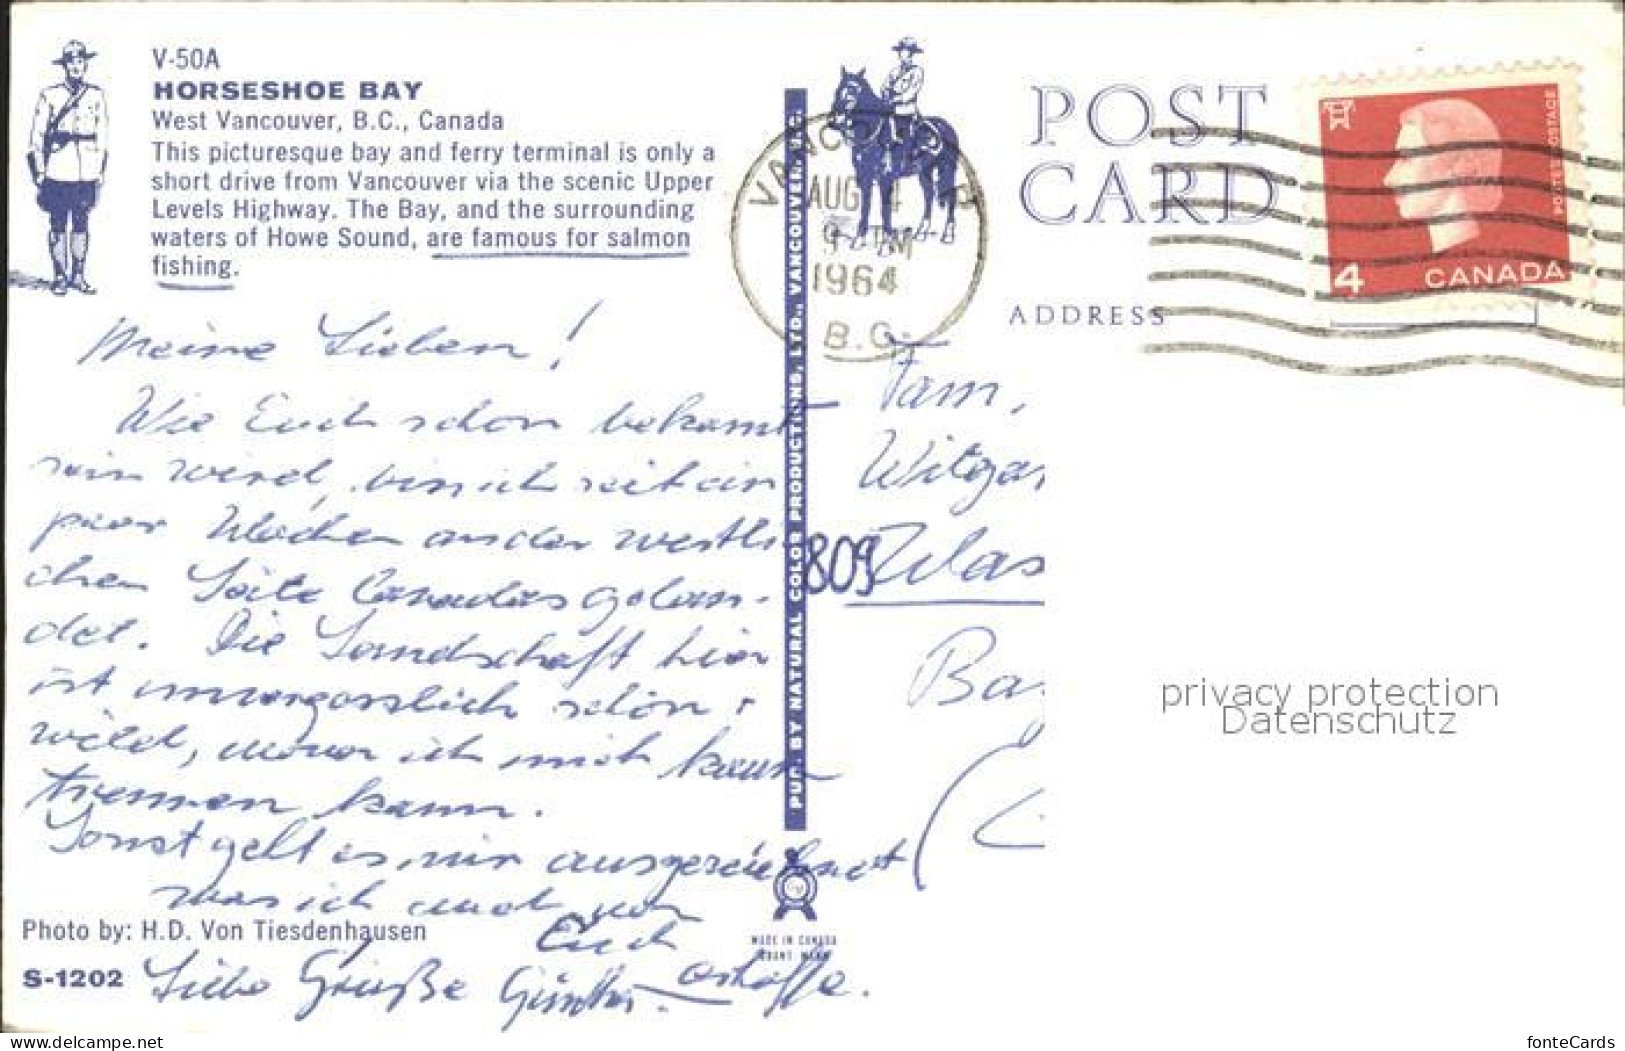 V-50A
HORSESHOE BAY
West Vancouver, B.C., Canada
This picturesque bay and ferry terminal is only a
short drive from Vancouver via the scenic Upper
Levels Highway. The Bay, and the surrounding
waters of Howe Sound, are famous for salmon
fishing.
Meine Lieben!
Wie Euch schon bekannt
sein wird, bin ich seit ein
paar Wochen an der westli-
chen Seite Canadas gelan-
det. Die Landschaft hier
ist unvergesslich schön,
wild, wovon ich mich kaum
trennen kann.
Sonst geht es mir ausgezeichnet
was ich auch von
Euch
erhoffe.
Liebe Grüße Günther.
Photo by: H.D. Von Tiesdenhausen
S-1202
PUB. BY NATURAL COLOR PRODUCTIONS, LTD., VANCOUVER, B.C.
MADE IN CANADA
VANCOUVER
AUG 4
9 PM
1964
B.C.
POST
CARD
ADDRESS
POSTES POSTAGE
4 CANADA
Fam.
Witgar
809
Ba
privacy protection
Datenschutz
www.delcampe.net
fonteCards